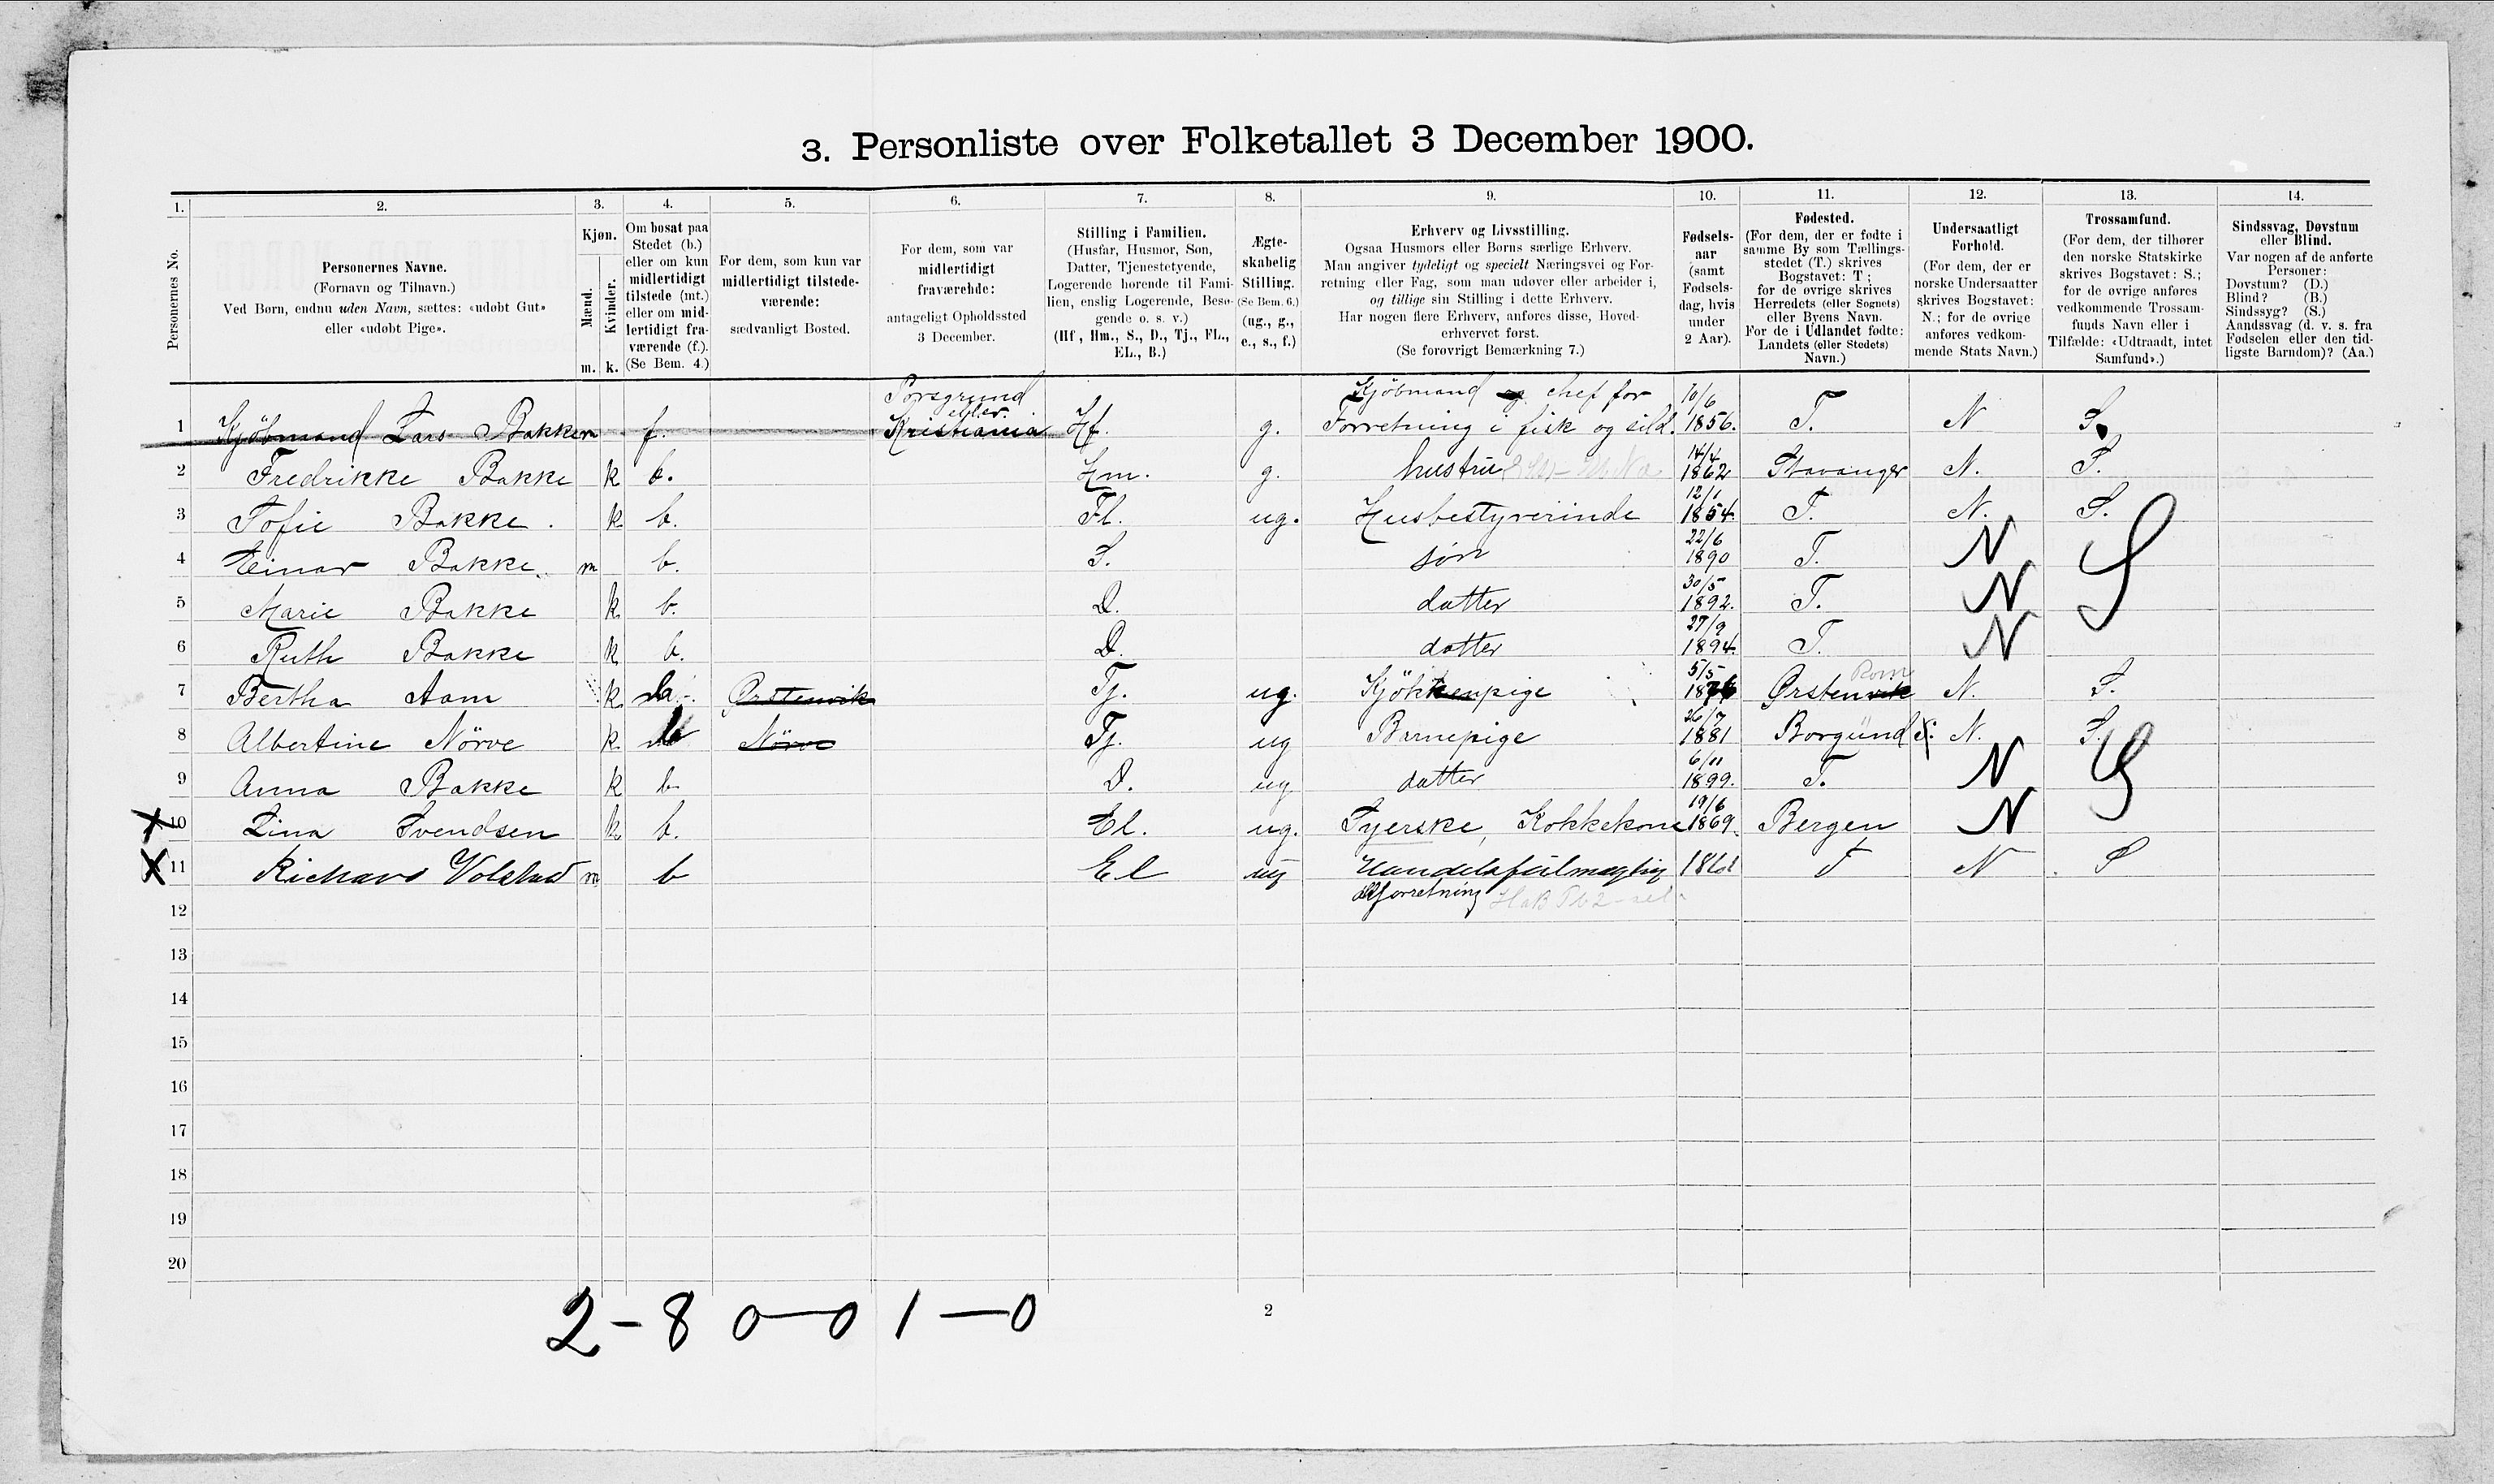 3. Personliste over Folketallet 3 December 1900.
1. 2. 3. 4. 5. 6. 7. 8. 9. 10. 11. 12. 13. 14.
Personernes No.
Personernes Navne.
(Fornavn og Tilnavn.)
Ved Børn, endnu uden Navn, sættes: «udøbt Gut»
eller «udøbt Pige».
Kjøn.
Mænd.
Kvinder.
m. k.
Om bosat paa
Stedet (b.)
eller om kun
midlertidigt
tilstede (mt.)
eller om mid-
lertidigt fra-
værende (f.).
(Se Bem. 4.)
For dem, som kun var
midlertidigt tilstede-
værende:
sædvanligt Bosted.
For dem, som var
midlertidigt
fraværende:
antageligt Opholdssted
3 December.
Stilling i Familien.
(Husfar, Husmor, Søn,
Datter, Tjenestetyende,
Logerende hørende til Fami-
lien, enslig Logerende, Besø-
gende o. s. v.)
(Hf, Hm., S., D., Tj., FL.,
EL., B.)
Ægte-
skabelig
Stilling.
(Se Bem. 6.)
(ug., g.,
e., s., f.)
Erhverv og Livsstilling.
Ogsaa Husmors eller Børns særlige Erhverv.
Man angiver tydeligt og specielt Næringsvei og For-
retning eller Fag, som man udøver eller arbeider i,
og tillige sin Stilling i dette Erhverv.
Har nogen flere Erhverv, anføres disse, Hoved-
erhvervet først.
(Se forøvrigt Bemærkning 7.)
Fødsels-
aar
(samt
Fødsels-
dag, hvis
under
2 Aar).
Fødested.
(For dem, der er fødte i
samme By som Tællings-
stedet (T.) skrives
Bogstavet: T;
for de øvrige skrives
Herredets (eller Sognets)
eller Byens Navn.
For de i Udlandet fødte:
Landets (eller Stedets)
Navn.)
Undersaatligt
Forhold.
(For dem, der er
norske Undersaatter
skrives Bogstavet:
N.; for de øvrige
anføres vedkom-
mende Stats Navn.)
Trossamfund.
(For dem, der tilhører
den norske Statskirke
skrives Bogstavet: S.;
for de øvrige anføres
vedkommende Trossam-
funds Navn eller i
Tilfælde: «Udtraadt, intet
Samfund».)
Sindssvag, Døvstum
eller Blind.
Var nogen af de anførte
Personer:
Døvstum? (D.)
Blind? (B.)
Sindssyg? (S.)
Aandssvag (d. v. s. fra
Fødselen eller den tid-
ligste Barndom)? (Aa.)
Porsgrund Kjöbmand og chef for 10/6
eller
1 Kjöbmand Lars Bakke m f. Kristiania Hf. g. Forretning i fisk og sild. 1856. T. N S.
14/4
2 Fredrikke Bakke k b. Hm. g. hustru 1862 Stavanger N. S.
12/1
3 Sofie Bakke. k b. Fl. ug. Husbestyrerinde 1854. T. N. S.
22/6
4 Einar Bakke. m b. S. sön 1890 T. N S
30/5
5 Marie Bakke k b. D. datter 1892. T. N
27/9
6 Ruth Bakke k b. D. datter 1894. T. N
5/5 Rom
7 Bertha Aam k b. Ørstenvik Tj. ug. Kjökkenpige 1876 Ørstenvik N. S.
26/7
8 Albertine Nörve k b Nörve Tj. ug Barnepige 1881 Borgund S. N. S.
6/11
9 Anna Bakke k b. D. ug datter 1899. T. N S
19/6
X 10 Lina Svendsen k b. El. ug. Syerske, Kokkekone 1869. Bergen N
X 11 Richard Volstad m b El ug Handelsfuldmægtig 1861 T N S
forretning
12
13
14
15
16
17
18
19
20
2 – 8 0 — 0 1 — 0
2